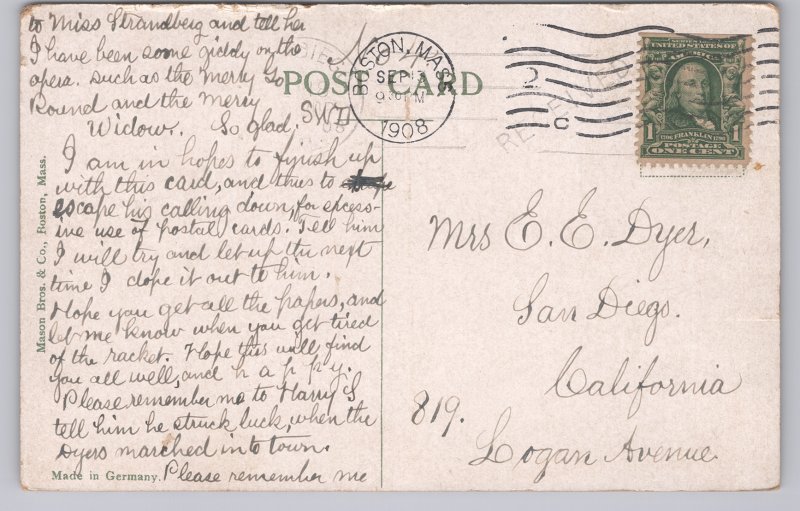 to Miss Strandberg and tell her
I have been some giddy on the
opera. such as the Merry Go
Round and the Merry
Widow. So glad.
I am in hopes to finish up
with this card, and thus to
escape his calling down, for excess-
ive use of postal cards. Tell him
I will try and let up the next
time I dope it out to him.
Hope you get all the papers, and
let me know when you get tired
of the racket. Hope this will find
you all well, and h a p p y.
Please remember me to Harry S
tell him he struck luck, when the
Dyers marched in to town.
Please remember me
Made in Germany.
Mason Bros. & Co., Boston, Mass.
No 4
POST CARD
SWD
BOSTON, MASS.
SEP
1908
2
C
RECEIVED
UNITED STATES OF AMERICA
1
FRANKLIN
POSTAGE
ONE CENT
1
Mrs E. E. Dyer,
San Diego.
California
819.
Logan Avenue.